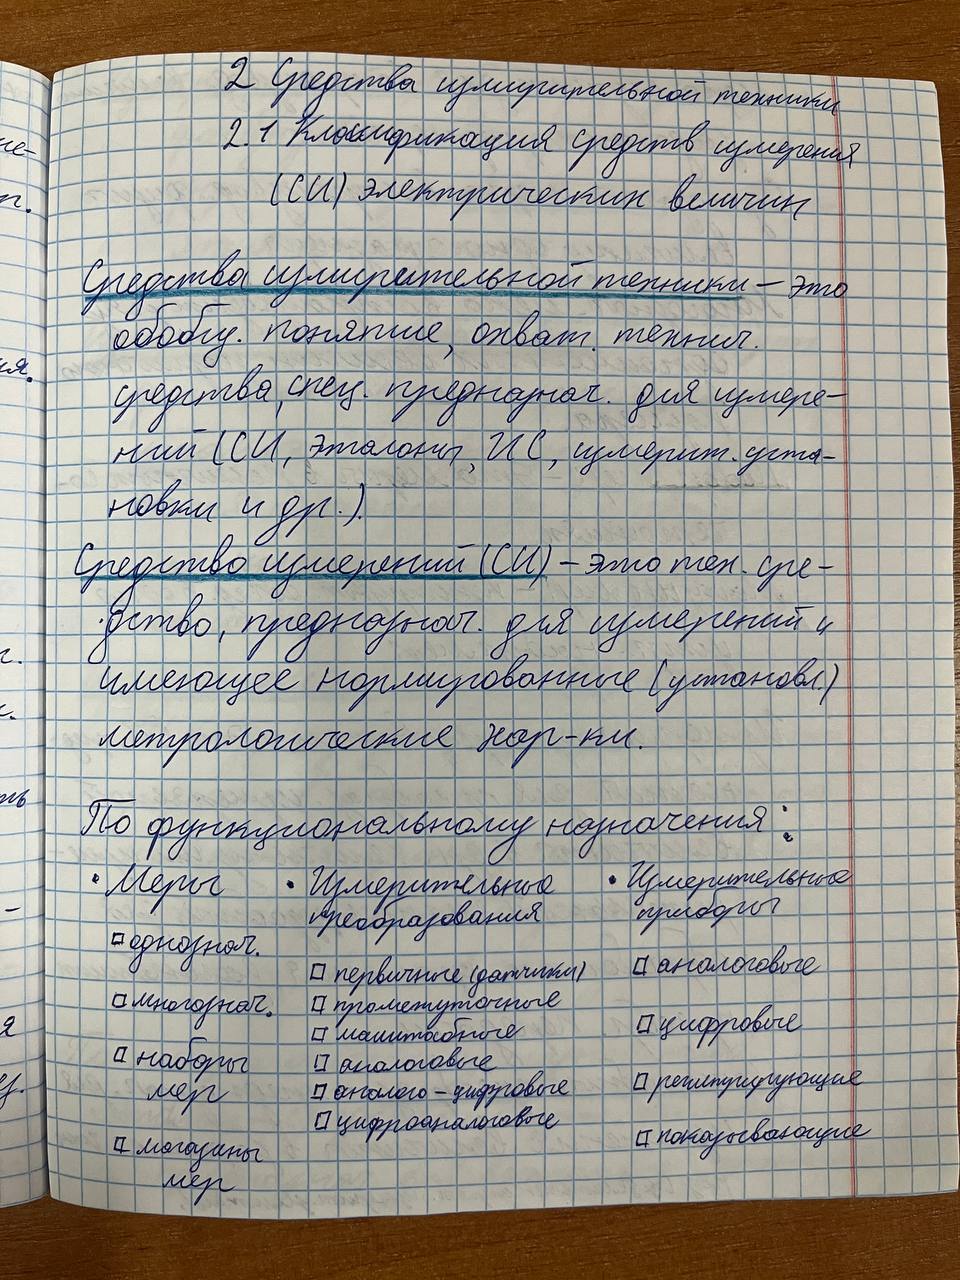 2 Средства измирительной техники
2.1 Классификация средств измерения
(СИ) электрических величин
Средства измирительной техники – это
обобщ. понятие, охват. технич.
средства, спец. предназнач. для измере-
ний (СИ, эталоны, ИС, измерит. уста-
новки и др.).
Средство измерений (СИ) – это тех. сре-
дство, предназнач. для измерений и
имеющее нормированные (установл.)
метрологические хар-ки.
По функциональному назначения:
• Меры
□ однознач.
□ многознач.
□ наборы
мер
□ магазины
мер
• Измерительные
преобразования
□ первичные (датчики)
□ промежуточные
□ маштабные
□ аналоговые
□ аналого – цифровые
□ цифроаналоговые
• Измерительные
приборы
□ аналоговые
□ цифровые
□ регистрирующие
□ показывающие